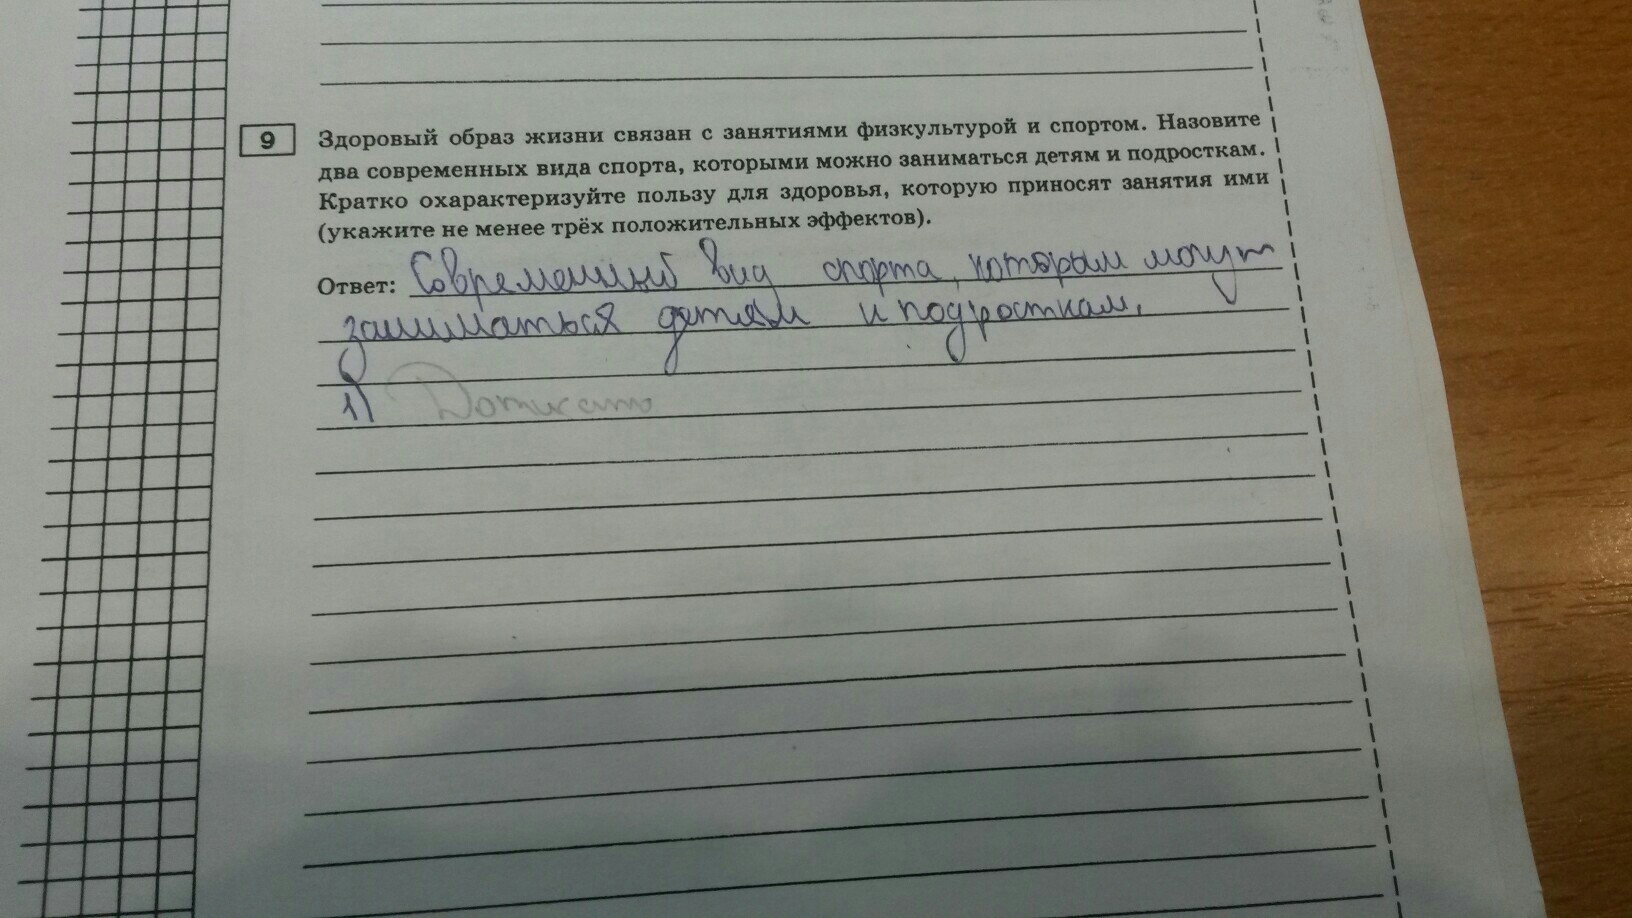 9
Здоровый образ жизни связан с занятиями физкультурой и спортом. Назовите
два современных вида спорта, которыми можно заниматься детям и подросткам.
Кратко охарактеризуйте пользу для здоровья, которую приносят занятия ими
(укажите не менее трёх положительных эффектов).
Ответ: Современный вид спорта, которым могут
заниматься детям и подросткам.
1) Дописать